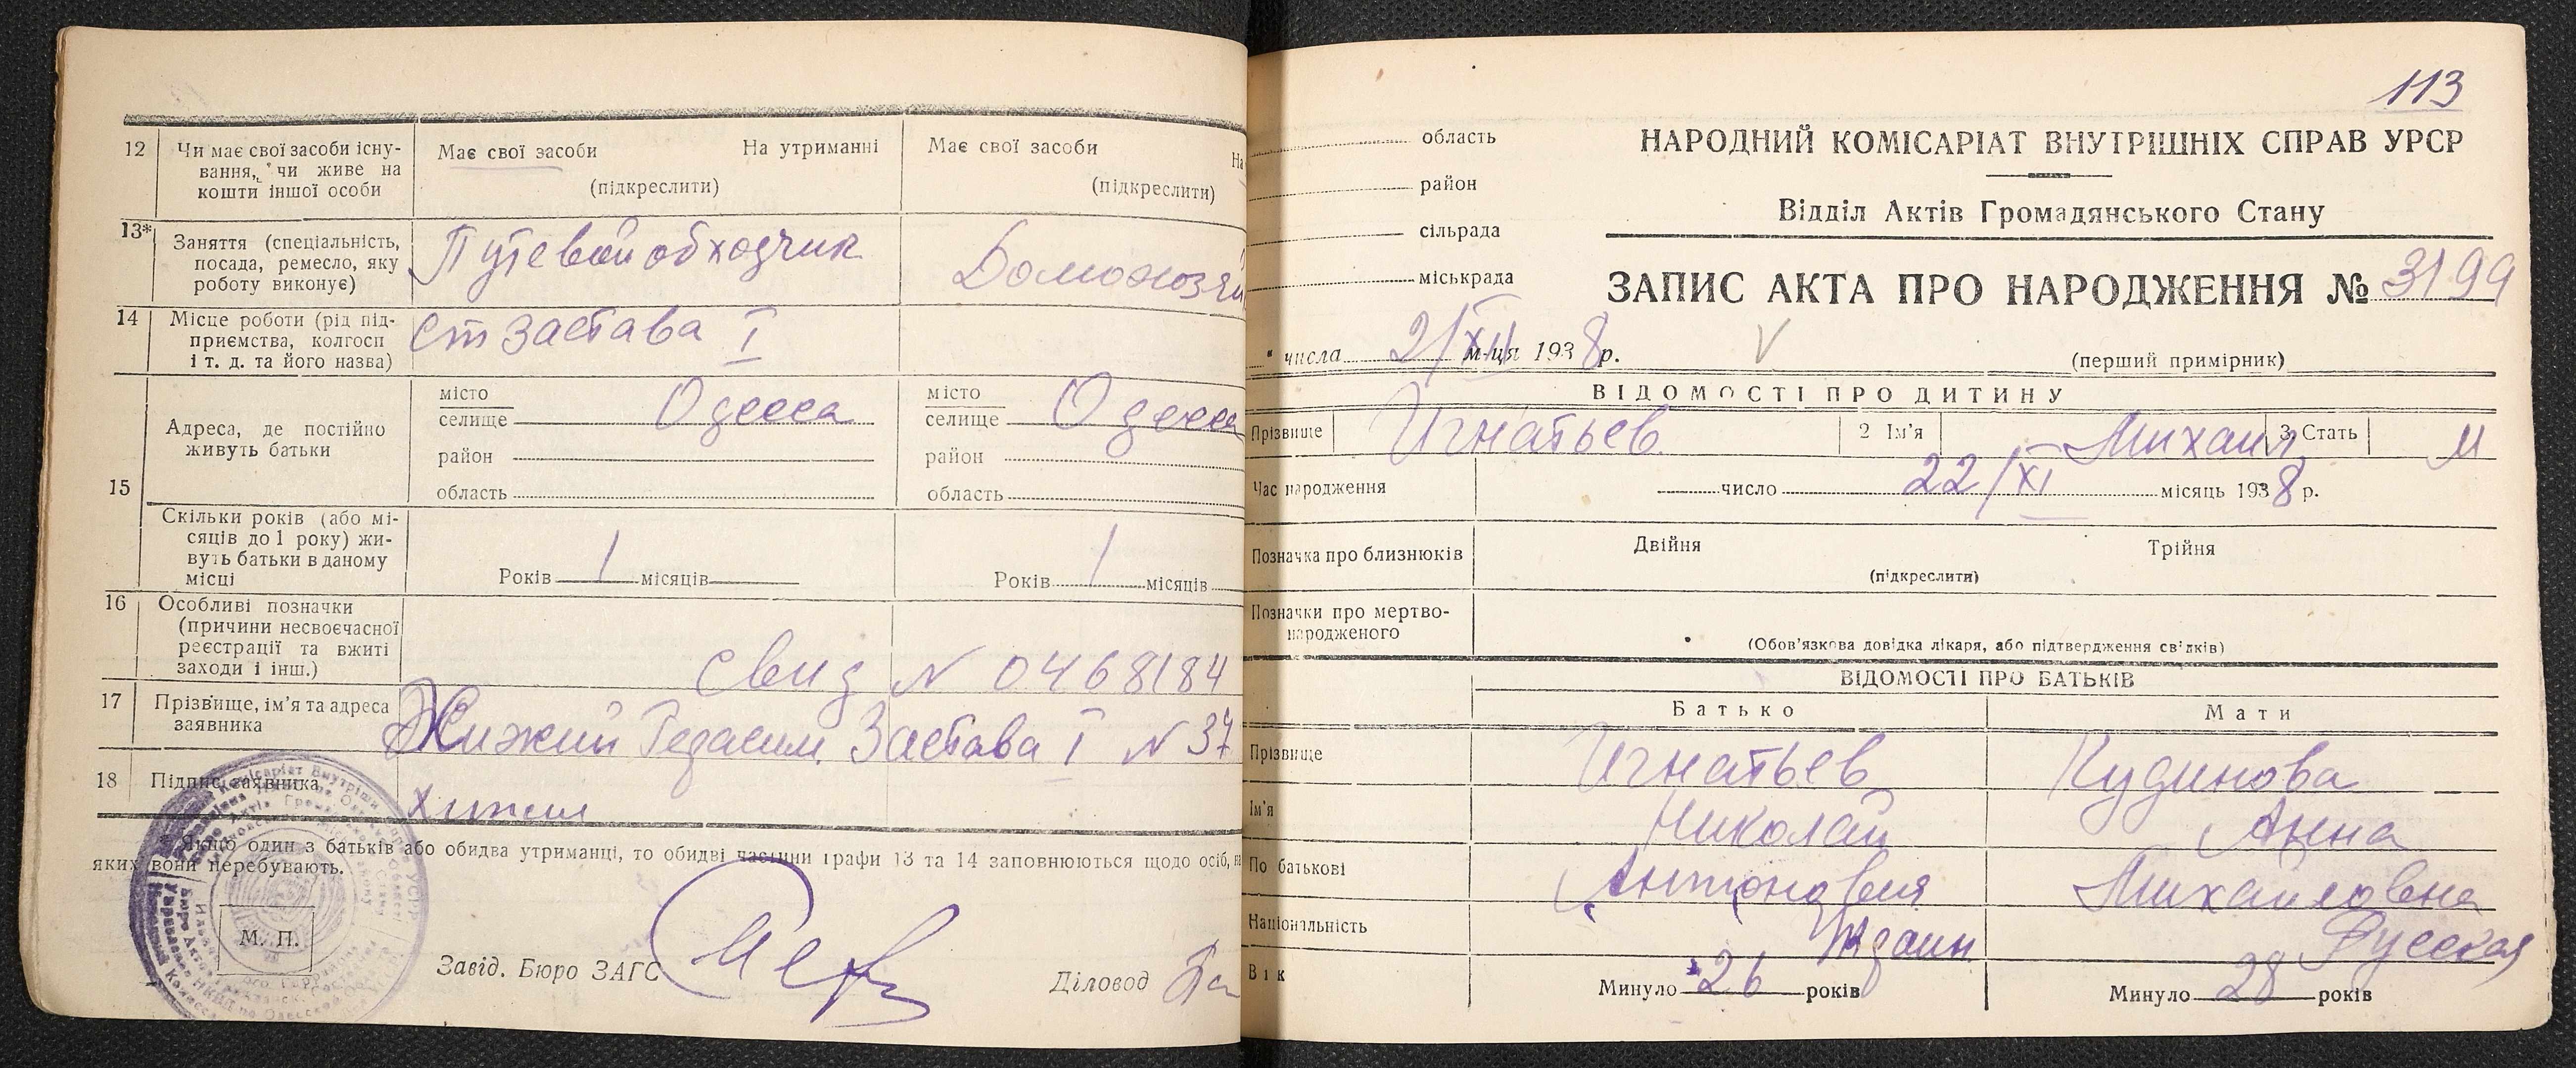 12 Чи має свої засоби існу-
вання, чи живе на
кошти іншої особи
Має свої засоби На утриманні
(підкреслити)
Має свої засоби На
(підкреслити)
13* Заняття (спеціальність,
посада, ремесло, яку
роботу виконує)
Путевой обходчик
Домохозяй
14 Місце роботи (рід під-
приємства, колгосп
і т. д. та його назва)
ст Застава I
15
Адреса, де постійно
живуть батьки
місто
селище Одесса
район
область
місто
селище Одесса
район
область
Скільки років (або мі-
сяців до 1 року) жи-
вуть батьки в даному
місці
Років 1 місяців
Років 1 місяців
16 Особливі позначки
(причини несвоєчасної
реєстрації та вжиті
заходи і інш.)
Свид N 0468184
17 Прізвище, ім'я та адреса
заявника
Герасим Застава I N 37
18 Підпис заявника
Якщо один з батьків або обидва утриманці, то обидві частини графи 13 та 14 заповнюються щодо осіб, на
яких вони перебувають.
М. П.
Завід. Бюро ЗАГС
Діловод
113
область
район
сільрада
міськрада
НАРОДНИЙ КОМІСАРІАТ ВНУТРІШНІХ СПРАВ УРСР
Відділ Актів Громадянського Стану
ЗАПИС АКТА ПРО НАРОДЖЕННЯ № 3199
" числа 21/XII м-ця 1938 р.
(перший примірник)
ВІДОМОСТІ ПРО ДИТИНУ
Прізвище Игнатьев 2 Ім'я Михаил 3. Стать М
Час народження число 22/XI місяць 1938 р.
Позначка про близнюків Двійня Трійня
(підкреслити)
Позначки про мертво-
народженого
(Обов'язкова довідка лікаря, або підтвердження свідків)
ВІДОМОСТІ ПРО БАТЬКІВ
Батько Мати
Прізвище Игнатьев Кудинова
Ім'я Николай Анна
По батькові Антонович Михайловна
Національність Русская
Вік Минуло 26 років Минуло 28 років